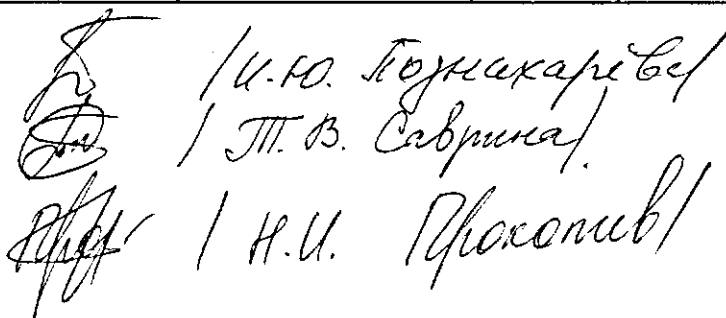 /И.Ю. Познахарёва/
/Т.В. Саврина/
/Н.И. Прокопив/